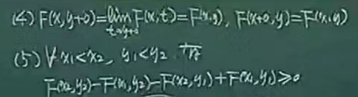 (4) F(x,y+0)=lim_{t→y+0} F(x,t)=F(x,y), F(x+0,y)=F(x,y)
(5) ∀x₁<x₂, y₁<y₂
F(x₂,y₂)-F(x₁,y₂)-F(x₂,y₁)+F(x₁,y₁)≥0